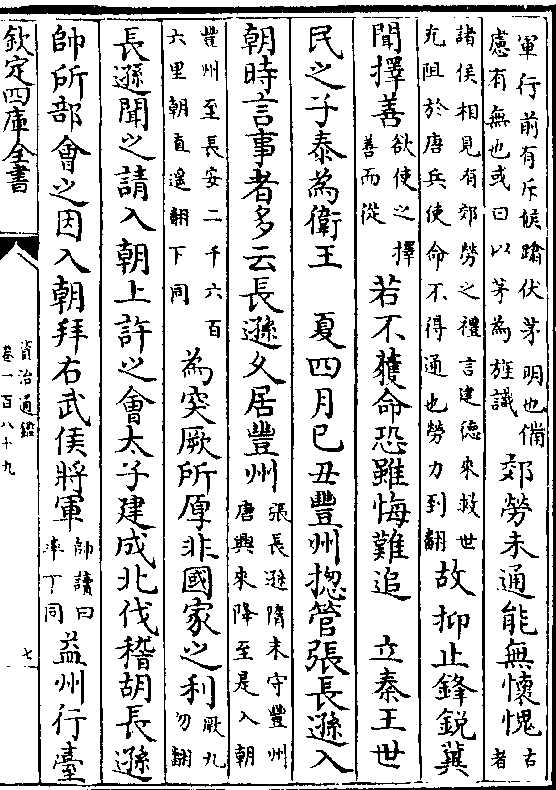 軍行前有斥候蹹伏茅明也備
慮有無也或曰以茅為旌識
郊勞未通能無懷愧
古
者
諸侯相見有郊勞之禮言建德來救世
充阻於唐兵使命不得通也勞力到翻
故抑止鋒銳冀
聞擇善
欲使之擇
善而從
若不獲命恐雖悔難追 立秦王世
民之子泰為衛王 夏四月己丑豐州揔管張長遜入
朝時言事者多云長遜久居豐州
張長遜隋末守豐州
唐興來降至是入朝
豐州至長安二千六百
六里朝直遥翻下同
為突厥所厚非國家之利
厥九
勿翻
長遜聞之請入朝上許之會太子建成北伐稽胡長遜
帥所部會之因入朝拜右武侯將軍
帥讀曰
率下同
益州行臺
欽定四庫全書
資治通鑑
卷一百八十九
七